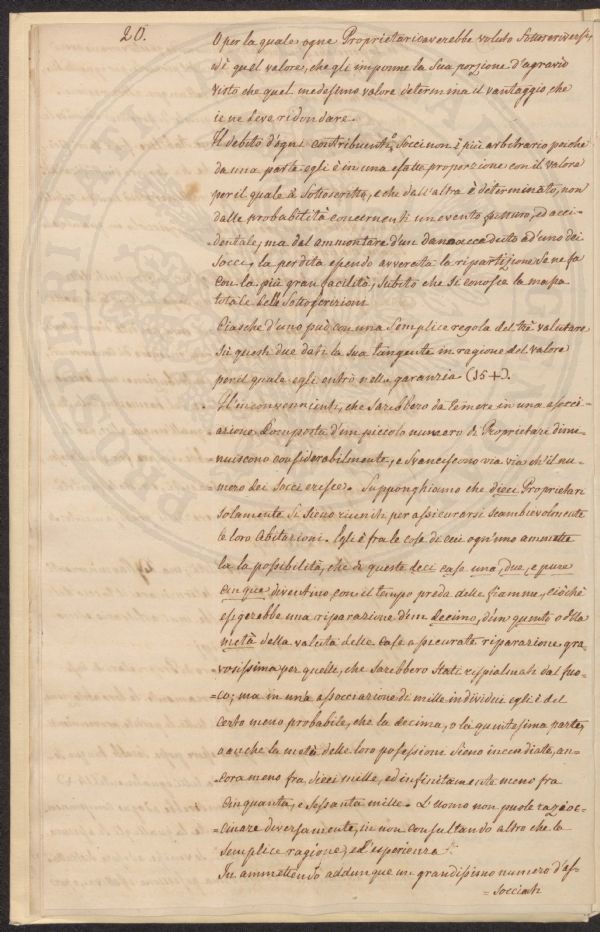 20.
O per la quale ogne Proprietario averebbe voluto Sottoscriversi,
ed è quel valore, che gli impone la Sua porzione d'agravio
visto che quel medesimo valore determina il vantaggio, che
ie ne deve ridondare.
Il debito d'ogni contribuente Socci non è più arbitrario poiche
da una parte egli è in una esatta proporzione con il valore
per il quale à Sottoscritto, e che dall'altra è determinato, non
dalle probabilità concernenti un evento futuro, ed acci-
dentale, ma dal ammontare d'un danno accaduto ad'uno dei
Socci, la perdita essendo avverata la ripartizione Se ne fa
con la più gran facilità, Subito che si conosca la massa
totale delle Sottoscrizioni
Ciasche d'uno può con una Semplice regola del trè valutare
Sù queste due dati la sua tangente in ragione del valore
per il quale egli entrò nella garanzia (15+).
Gl'inconvenienti, che Sarebbero da temere in una associ-
-azione Composta d'un piccolo numero di Proprietari dimi-
nuiscono considerabilmente, e Svaniscono via via ch'il nu-
mero dei Socci cresce. Supponghiamo che dieci Proprietari
solamente Si Sieno riuniti per assicurarsi Scambievolmente
le loro Abitazioni. Egli è fra le cose di cui ogn'uno ammette
la la possibilità, che di queste deci case una, due, e pure
cinque diventino con il tempo preda delle fiamme, ciòchè
esigerebbe una riparazione d'un Decimo, d'un quinto o della
metà della valuta delle Case assicurate riparazione gra-
vosissima per quelle, che Sarebbero Stati rispialmate dal fuo-
-co; ma in un'a associazione di mille individui egli è del
certo meno probabile, che la decima, o la quintesima parte,
o anche la metà delle loro possessione Sieno incendiate, an-
cora meno fra dieci mille, ed infinitamente meno fra
cinquanta, e Sessanta mille. L'Uomo non puole razioc-
cinare diversamente, in non consultando altro che la
Semplice ragione, e l'esperienza.
In ammettendo addunque un grandissimo numero d'as-
= Socciati
PROSPERITATI